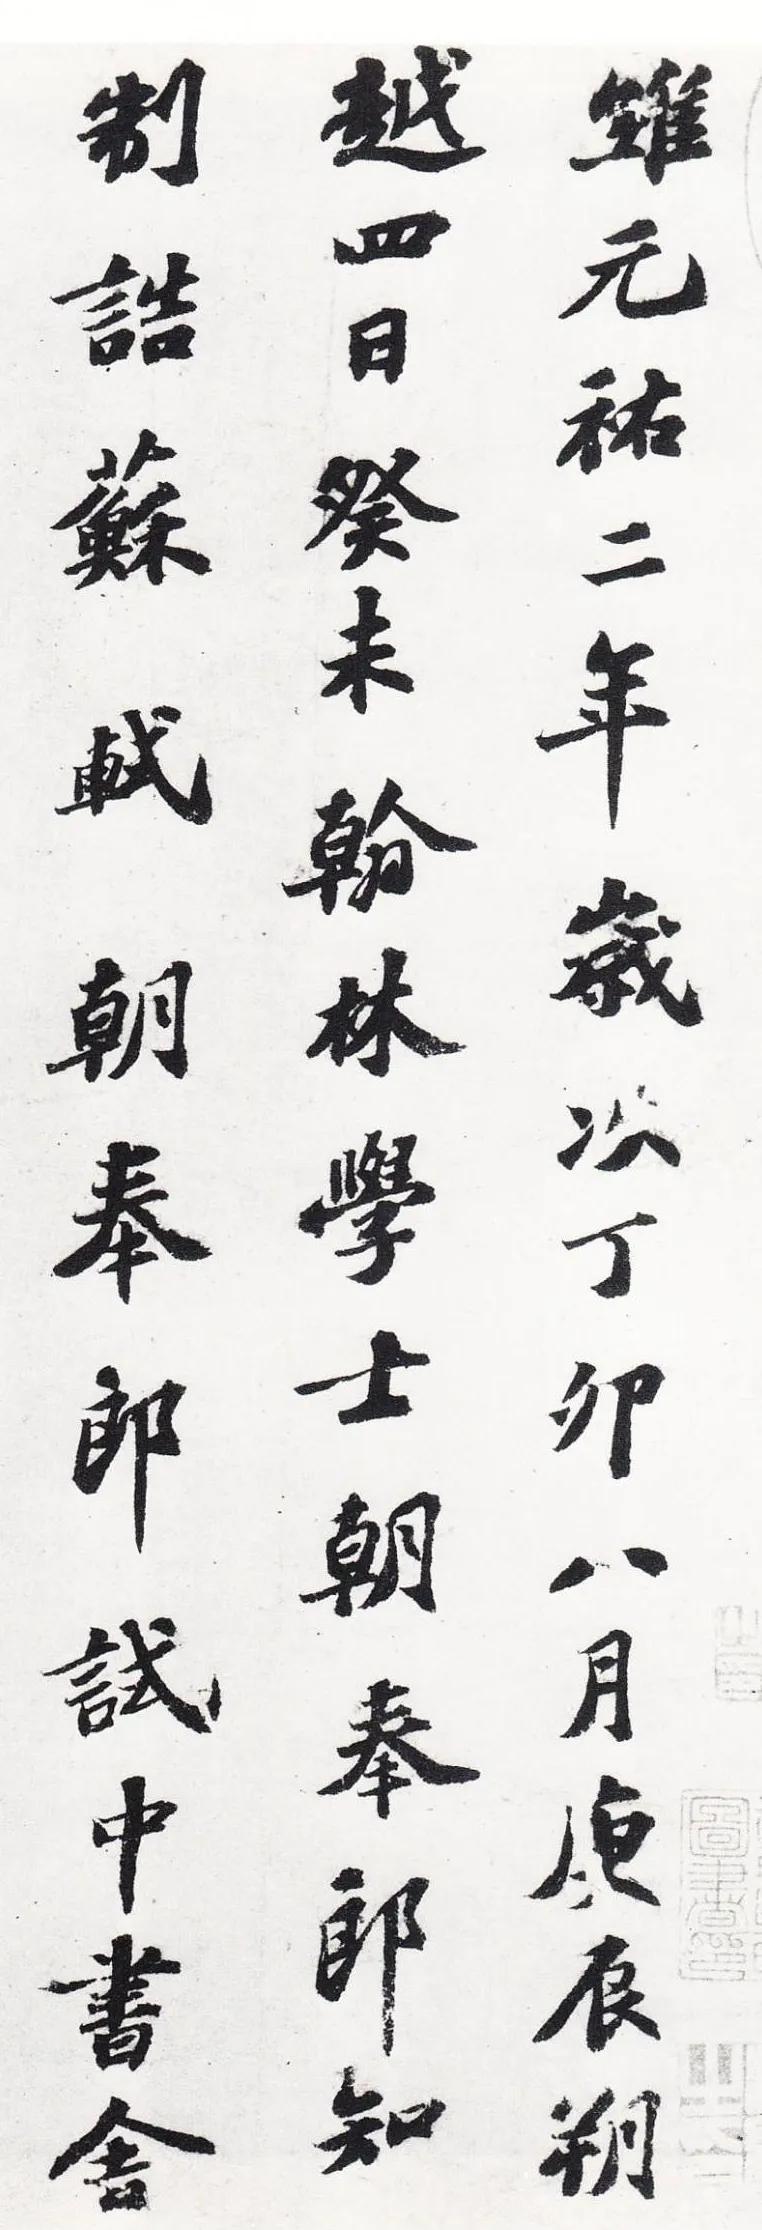 維元祐二年歲次丁卯八月庚辰朔
越四日癸未翰林學士朝奉郎知
制誥蘇軾朝奉郎試中書舍